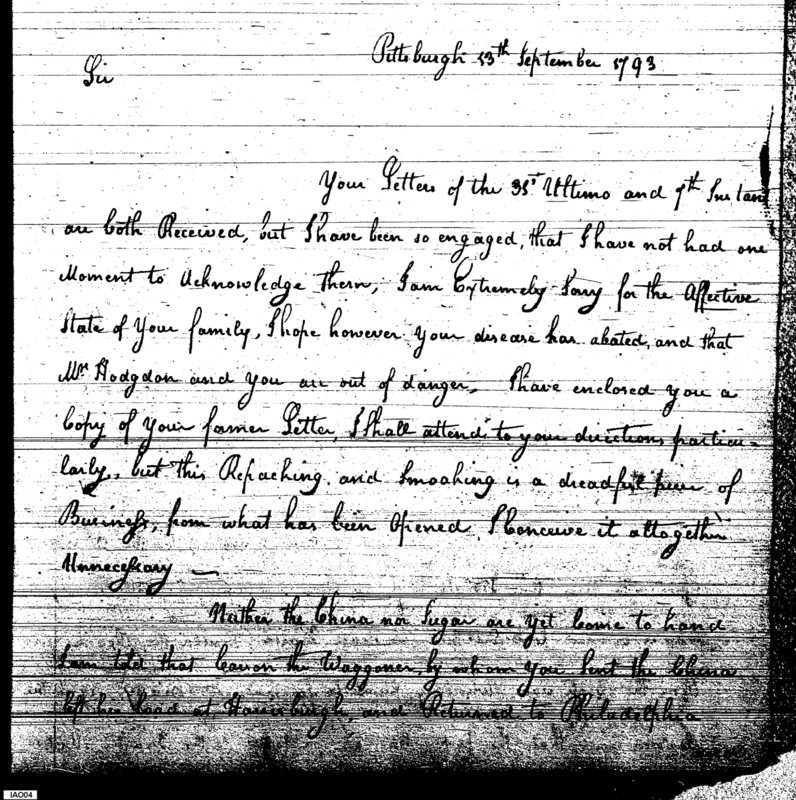 Pittsburgh 13th September 1793
Sir
Your Letters of the 31st Ultimo and 7th Instant
are both Received, but I have been so engaged, that I have not had one
Moment to Acknowledge them, I am Extremely Sorry for the Affective
State of Your family, I hope however your disease has abated, and that
Mr Hodgdon and you are out of danger. I have enclosed you a
Copy of Your former Letter, I Shall attend to your directions particu-
larly, but this Repacking and Smoaking is a dreadful piece of
Business, from what has been Opened I Conceive it altogether
Unnecessary —
Neither the China nor Sugar are yet Come to hand
I am told that the Waggoner, by whom You Sent the China
left his Load at Harrisburgh, and Returned to Philadelphia
IAO04